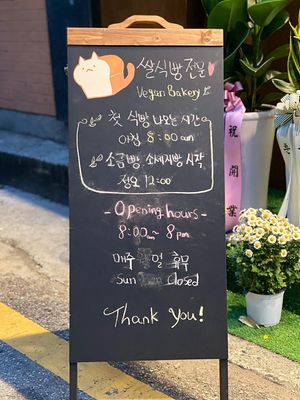 쌀식빵 전문
Vegan Bakery
첫 식빵 나오는 시간
아침 8:00 am
소금빵, 소세지빵 시작
정오 12:00
- Opening hours -
8:00am ~ 8 pm
매주 일 휴무
Sun Closed
Thank you!
祝開業